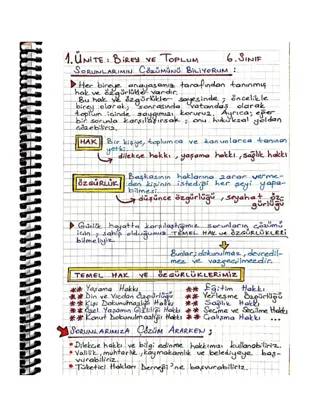 1. ÜNİTE: BİREY VE TOPLUM 6. SINIF
SORUNLARIMIN ÇÖZÜMÜNÜ BİLİYORUM:
Her bireye anayasamız tarafından tanınmış
hak ve özgürlükler vardır.
Bu hak ve özgürlükler sayesinde; öncelikle
birey olarak, sonrasında vatandaş olarak
toplum içinde saygımızı koruruz. Ayrıca; eğer
bir sorunla karşılaşırsak; onu hukuksal yoldan
çözebiliriz.
HAK Bir kişiye, topluma ve kanunlarca tanınan
yetki.
dilekçe hakkı, yaşama hakkı, sağlık hakkı
ÖZGÜRLÜK Başkasının haklarına zarar verme-
den kişinin istediği her şeyi yapa-
bilmesi
düşünce özgürlüğü, seyahat öz-
gürlüğü
Günlük hayatta karşılaştığımız sorunların çözümü
için; sahip olduğumuz TEMEL HAK ve ÖZGÜRLÜKLERİ
bilmeliyiz.
Bunlar; dokunulmaz, devredil-
mez ve vazgeçilmezdir.
TEMEL HAK VE ÖZGÜRLÜKLERİMİZ
** Yaşama Hakkı ** Eğitim Hakkı
** Din ve Vicdan Özgürlüğü ** Yerleşme Özgürlüğü
** Kişi Dokunulmazlığı Hakkı ** Sağlık Hakkı
** Özel Yaşamın Gizliliği Hakkı ** Seçme ve Seçilme Hakkı
** Konut Dokunulmazlığı Hakkı ** Çalışma Hakkı ...
SORUNLARIMIZA ÇÖZÜM ARARKEN;
• Dilekçe hakkı ve bilgi edinme hakkımızı kullanabiliriz.
• Valilik, muhtarlık, kaymakamlık ve belediyeye baş-
vurabiliriz.
• Tüketici Hakları Derneği'ne başvurabiliriz.